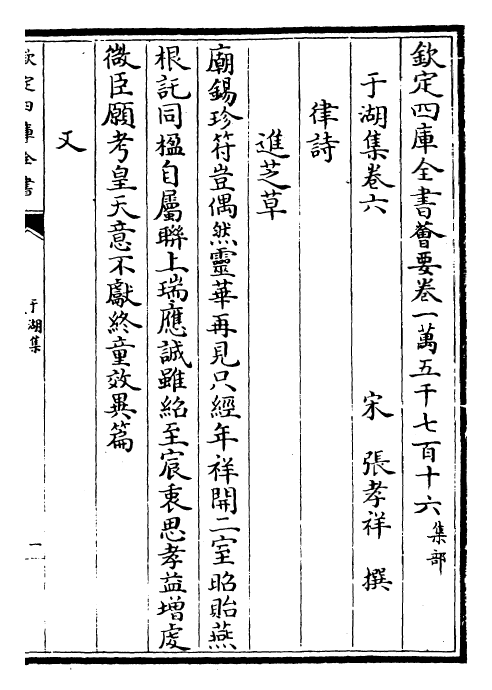 欽定四庫全書薈要卷一萬五千七百十六集部
于湖集卷六　宋　張孝祥　撰
律詩
進芝草
廟錫珍符豈偶然靈華再見只經年祥開二室昭貽燕
根託同楹自屬聯上瑞應誠雖紹至宸衷思孝益增虔
微臣願考皇天意不獻終童效異篇
又
欽定四庫全書
于湖集
一